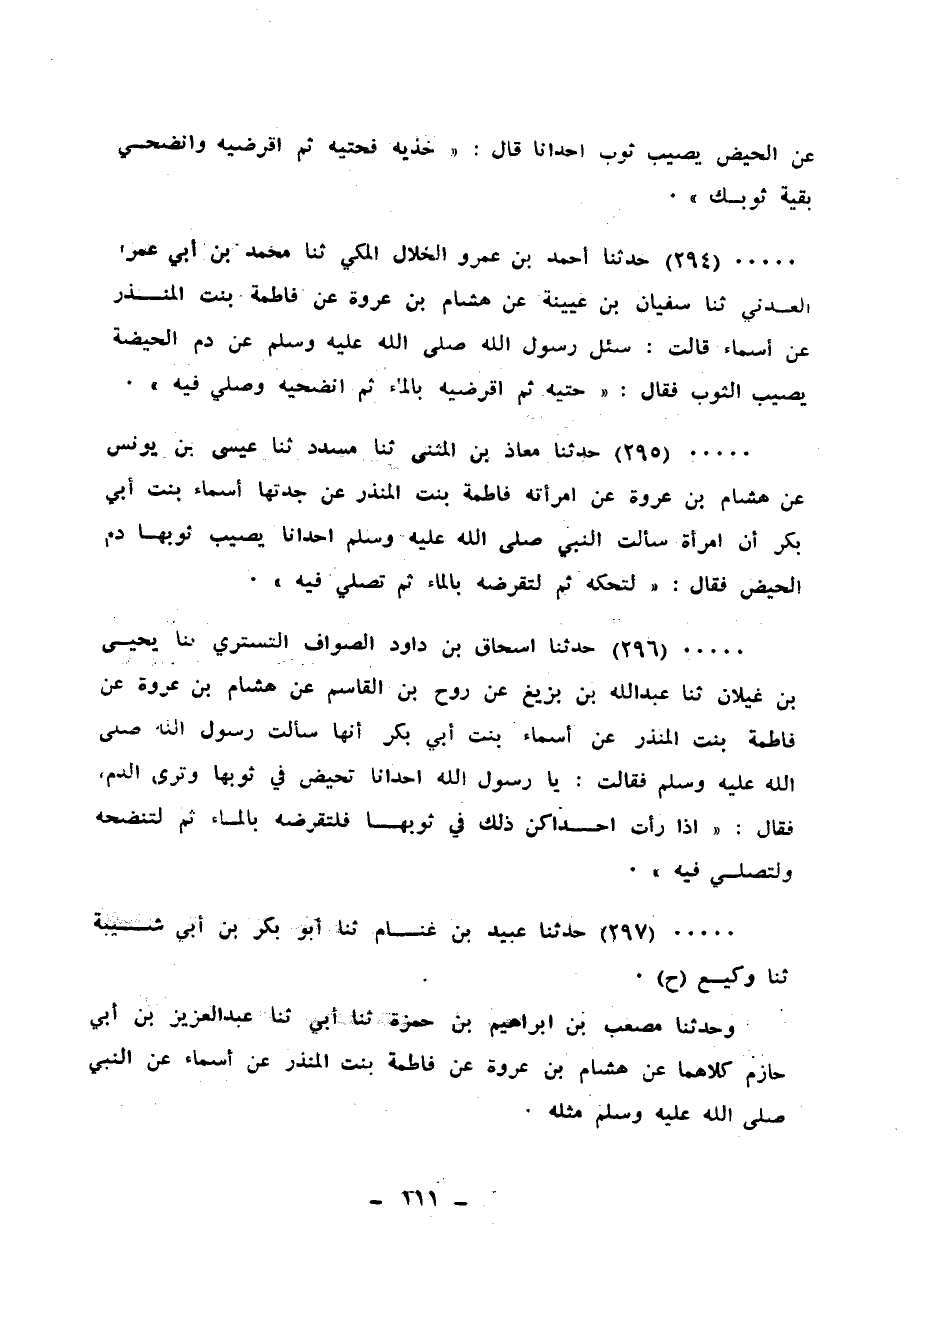 عن الحيض يصيب ثوب احدانا قال : « خذيه فحتيه ثم اقرضيه وانضحـي
بقية ثوبـك » ٠
٠٠٠٠٠ (٢٩٤) حدثنا أحمد بن عمرو الخلال المكي ثنا محمد بن أبي عمر
العـدني ثنا سفيان بن عيينة عن هشام بن عروة عن فاطمة بنت المنـــذر
عن أسماء قالت : سئل رسول الله صلى الله عليه وسلم عن دم الحيضة
يصيب الثوب فقال : « حتيه ثم اقرضيه بالماء ثم انضحيه وصلي فيه » ٠
٠٠٠٠٠ (٢٩٥) حدثنا معاذ بن المثنى ثنا مسدد ثنا عيسى بن يونس
عن هشام بن عروة عن امرأته فاطمة بنت المنذر عن جدتها أسماء بنت أبي
بكر أن امرأة سألت النبي صلى الله عليه وسلم احدانا يصيب ثوبهـا دم
الحيض فقال : « لتحكه ثم لتقرضه بالماء ثم تصلي فيه » ٠
٠٠٠٠٠ (٢٩٦) حدثنا اسحاق بن داود الصواف التستري ثنا يحيـى
بن غيلان ثنا عبدالله بن بزيغ عن روح بن القاسم عن هشام بن عروة عن
فاطمة بنت المنذر عن أسماء بنت أبي بكر أنها سألت رسول الله صلى
الله عليه وسلم فقالت : يا رسول الله احدانا تحيض في ثوبها وترى الدم،
فقال : « اذا رأت احـــداكن ذلك في ثوبهـــا فلتقرضه بالمـاء ثم لتنضحه
ولتصلـــي فيه » ٠
٠٠٠٠٠ (٢٩٧) حدثنا عبيد بن غنـــام ثنا أبو بكر بن أبي شـــيبة
ثنا وكيـع (ح) ٠
وحدثنا مصعب بن ابراهيم بن حمزة ثنا أبي ثنا عبدالعزيز بن أبي
حازم كلاهما عن هشام بن عروة عن فاطمة بنت المنذر عن أسماء عن النبي
صلى الله عليه وسلم مثله ٠
- ٢١١ -